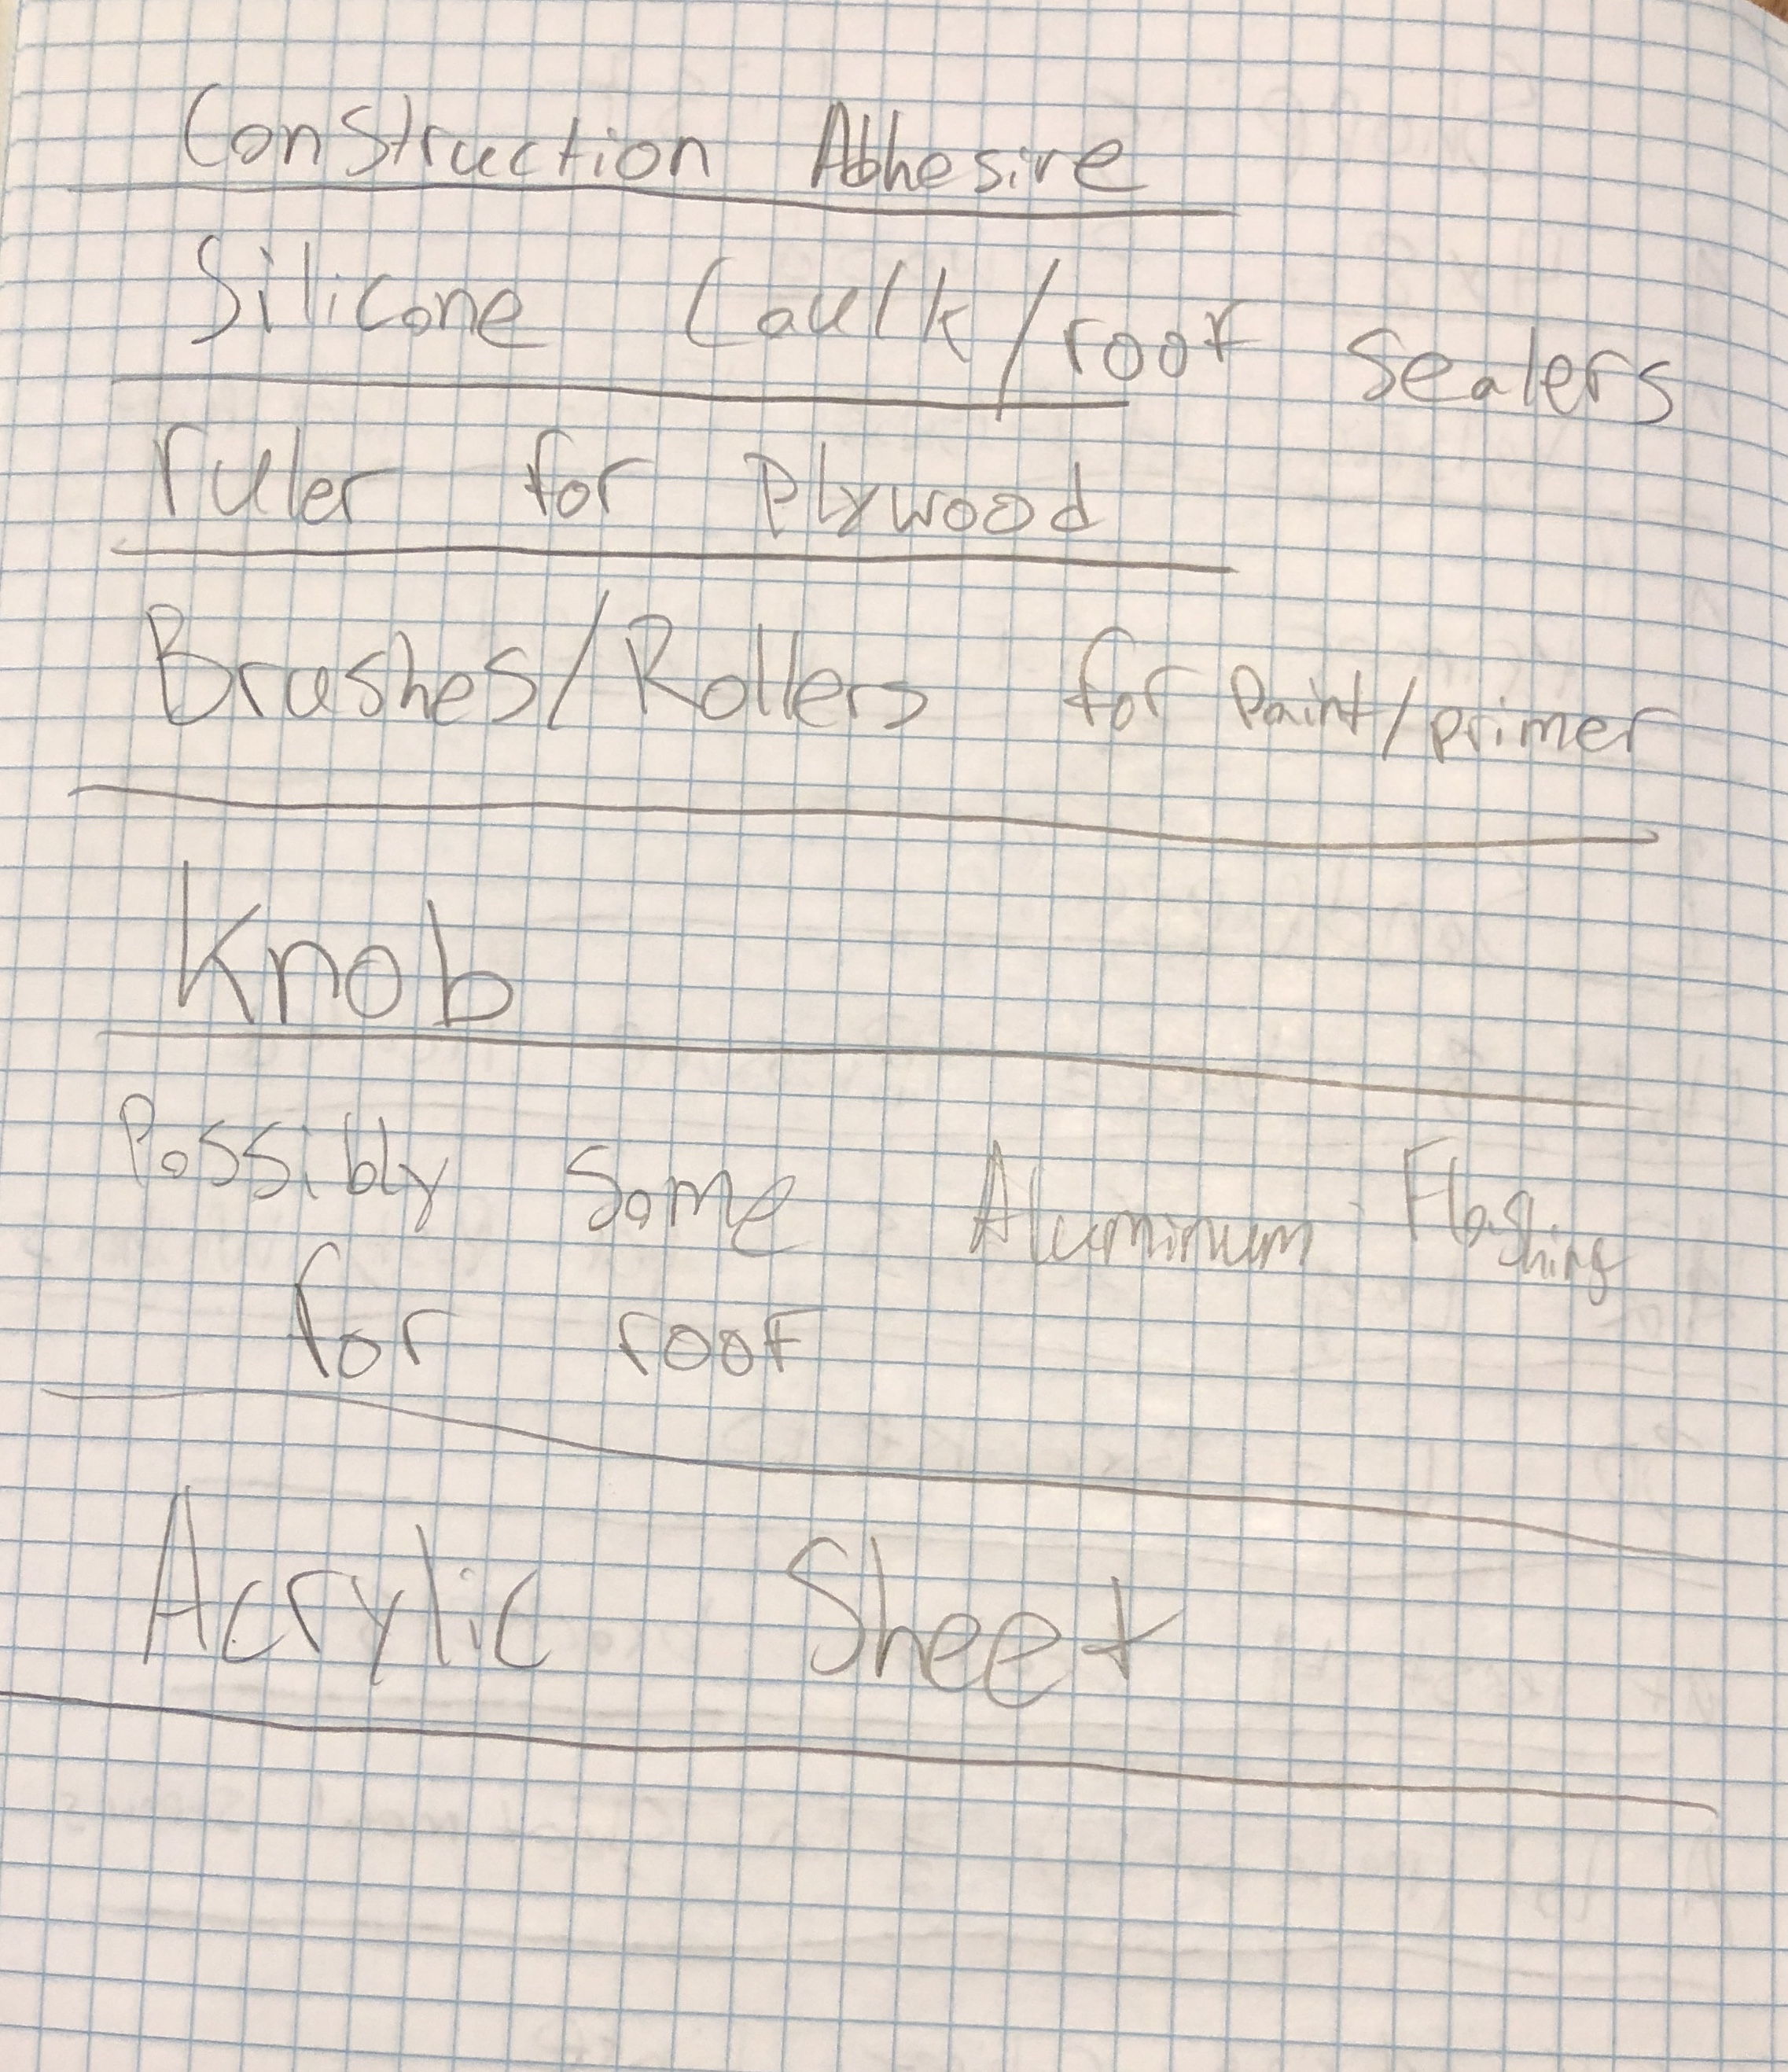 Construction Abhesive
Silicone Caulk/roof Sealers
ruler for Plywood
Brushes/Rollers for Paint/primer
Knob
Possibly Some Aluminum Flashing
for roof
Acrylic Sheet